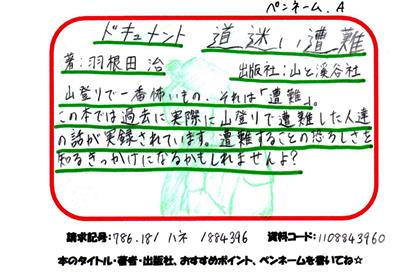 ペンネーム.A
ドキュメント 道迷い遭難
著:羽根田治
出版社:山と溪谷社
山登りで一番怖いもの、それは「遭難」。
この本では過去に実際に山登りで遭難した人達
の話が実録されています。遭難することの恐ろしさを
知るきっかけになるかもしれませんよ?
請求記号:786.18/ハネ/884396 資料コード:1108843960
本のタイトル・著者・出版社、おすすめポイント、ペンネームを書いてね☆